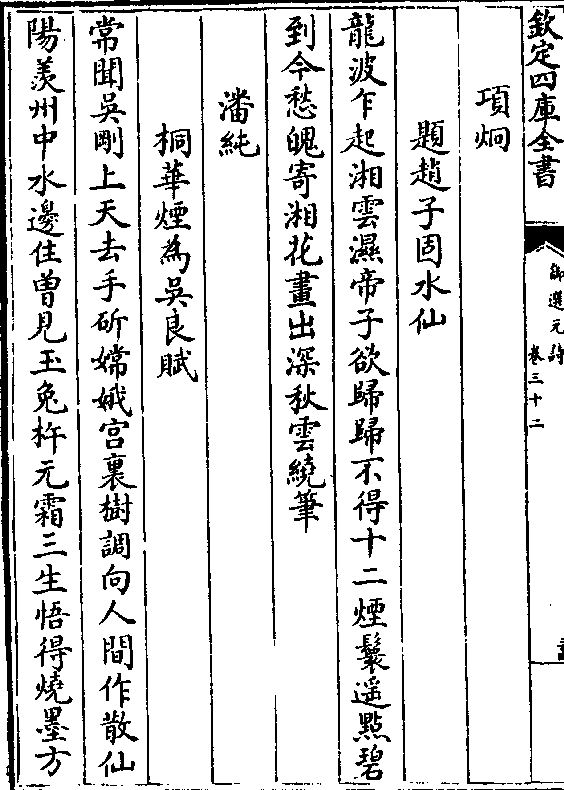 欽定四庫全書
御選元詩
卷三十二
項炯
題趙子固水仙
龍波乍起湘雲濕帝子欲歸歸不得十二煙鬟遥點碧
到今愁魄寄湘花畫出深秋雲繞筆
潘純
桐華煙為吳良賦
常聞吳剛上天去手斫嫦娥宮裏樹調向人間作散仙
陽羨州中水邊住曽見玉兔杵元霜三生悟得燒墨方